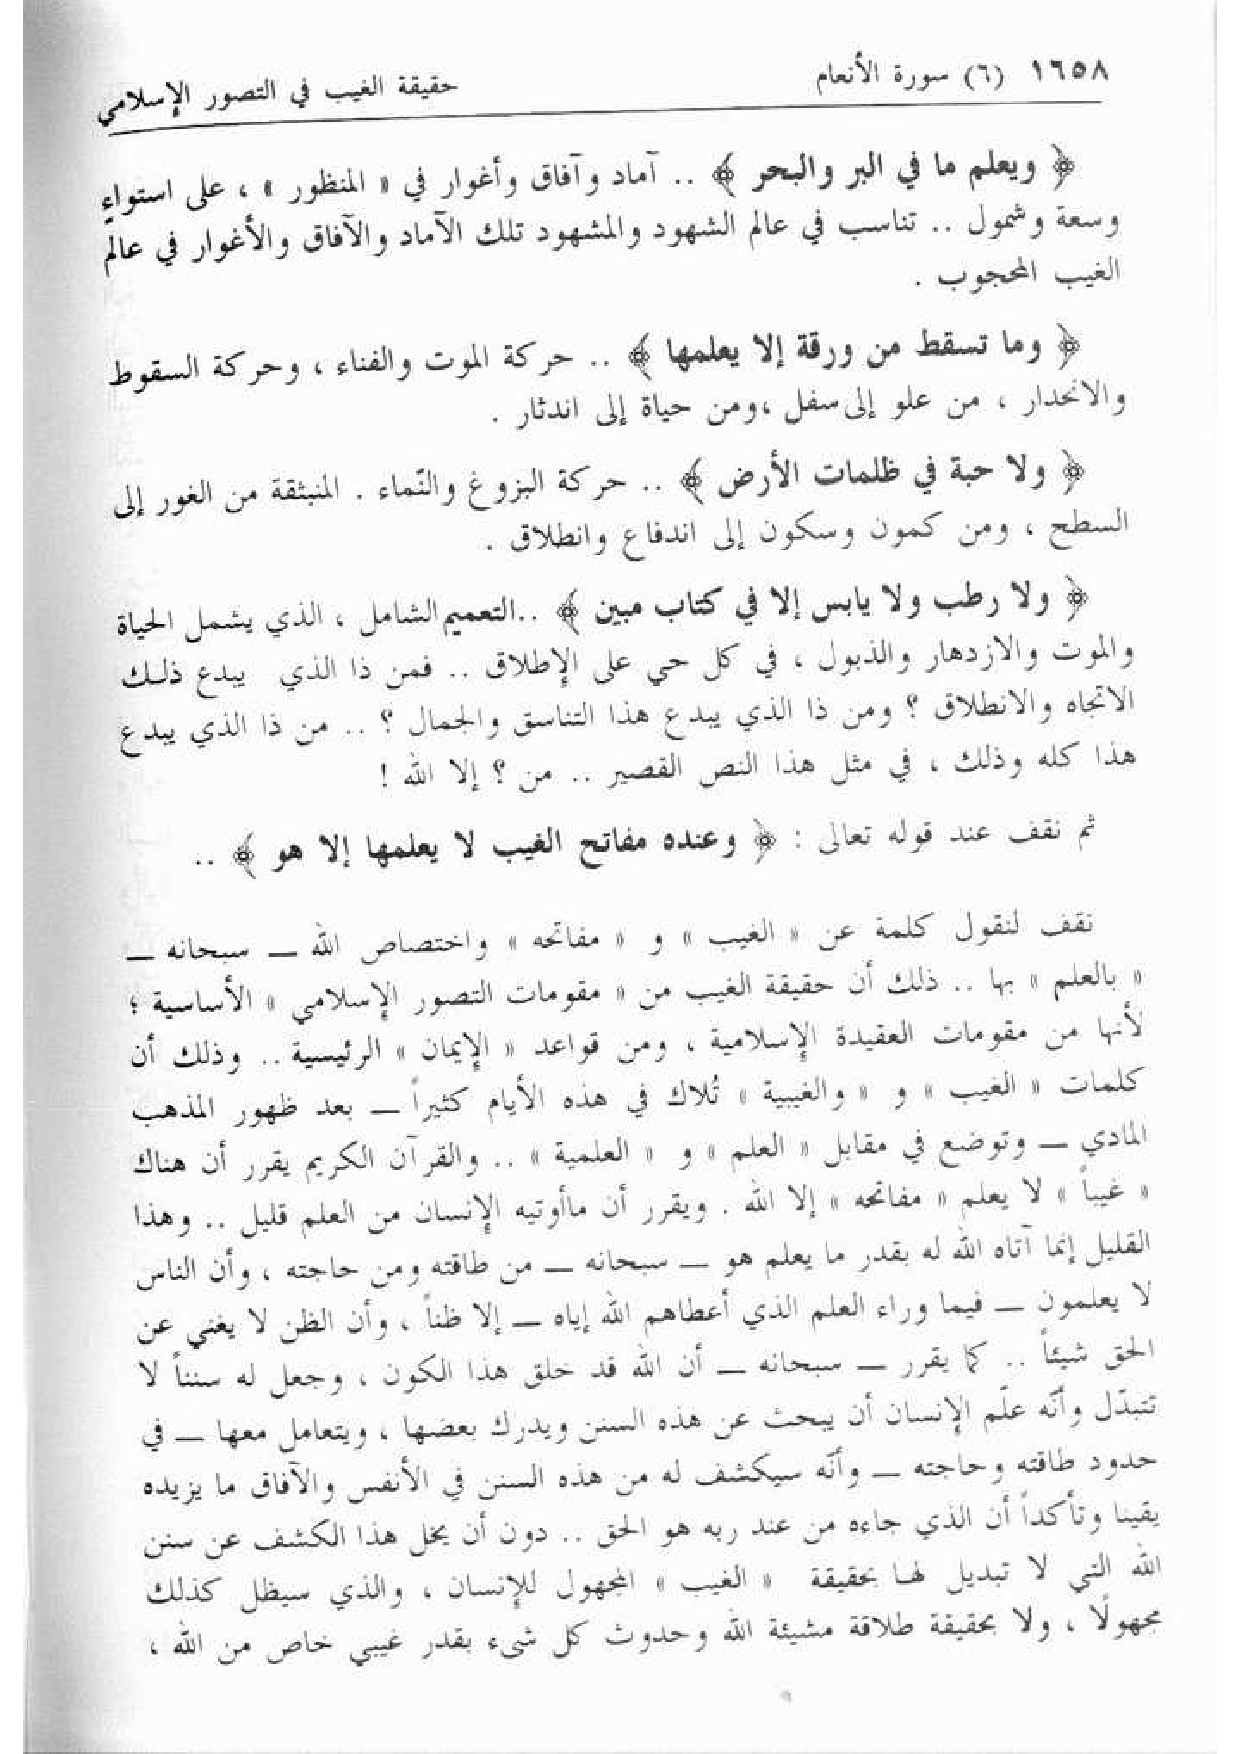 ١٦٥٨ (٦) سورة الأنعام حقيقة الغيب في التصور الإسلامي
﴿ ويعلم ما في البر والبحر ﴾ .. آماد وآفاق وأغوار في « المنظور » ، على استواءٍ
وسعة وشمول .. تناسب في عالم الشهود والمشهود تلك الآماد والآفاق والأغوار في عالم
الغيب المحجوب .
﴿ وما تسقط من ورقة إلا يعلمها ﴾ .. حركة الموت والفناء ، وحركة السقوط
والانحدار ، من علو إلى سفل ،ومن حياة إلى اندثار .
﴿ ولا حبة في ظلمات الأرض ﴾ .. حركة البزوغ والنّماء . المنبثقة من الغور إلى
السطح ، ومن كمون وسكون إلى اندفاع وانطلاق .
﴿ ولا رطب ولا يابس إلا في كتاب مبين ﴾ ..التعميم الشامل ، الذي يشمل الحياة
والموت والازدهار والذبول ، في كل حي على الإطلاق .. فمن ذا الذي يبدع ذلك
الاتجاه والانطلاق ؟ ومن ذا الذي يبدع هذا التناسق والجمال ؟ .. من ذا الذي يبدع
هذا كله وذلك ، في مثل هذا النص القصير .. من ؟ إلا الله !
ثم نقف عند قوله تعالى : ﴿ وعنده مفاتح الغيب لا يعلمها إلا هو ﴾ ..
نقف لنقول كلمة عن « الغيب » و « مفاتحه » واختصاص الله ــ سبحانه ــ
« بالعلم » بها .. ذلك أن حقيقة الغيب من « مقومات التصور الإسلامي » الأساسية ؛
لأنها من مقومات العقيدة الإسلامية ، ومن قواعد « الإيمان » الرئيسية .. وذلك أن
كلمات « الغيب » و « والغيبية » تُلاك في هذه الأيام كثيراً ــ بعد ظهور المذهب
المادي ــ وتوضع في مقابل « العلم » و « العلمية » .. والقرآن الكريم يقرر أن هناك
« غيباً » لا يعلم « مفاتحه » إلا الله . ويقرر أن ماأوتيه الإنسان من العلم قليل .. وهذا
القليل إنما آتاه الله له بقدر ما يعلم هو ــ سبحانه ــ من طاقته ومن حاجته ، وأن الناس
لا يعلمون ــ فيما وراء العلم الذي أعطاهم الله إياه ــ إلا ظناً ، وأن الظن لا يغني عن
الحق شيئاً .. كما يقرر ــ سبحانه ــ أن الله قد خلق هذا الكون ، وجعل له سنناً لا
تتبدّل وأنّه علّم الإنسان أن يبحث عن هذه السنن ويدرك بعضها ، ويتعامل معها ــ في
حدود طاقته وحاجته ــ وأنّه سيكشف له من هذه السنن في الأنفس والآفاق ما يزيده
يقينا وتأكداً أن الذي جاءه من عند ربه هو الحق .. دون أن يخل هذا الكشف عن سنن
الله التي لا تبديل لها بحقيقة « الغيب » المجهول للإنسان ، والذي سيظل كذلك
مجهولًا ، ولا بحقيقة طلاقة مشيئة الله وحدوث كل شيء بقدر غيبي خاص من الله ،